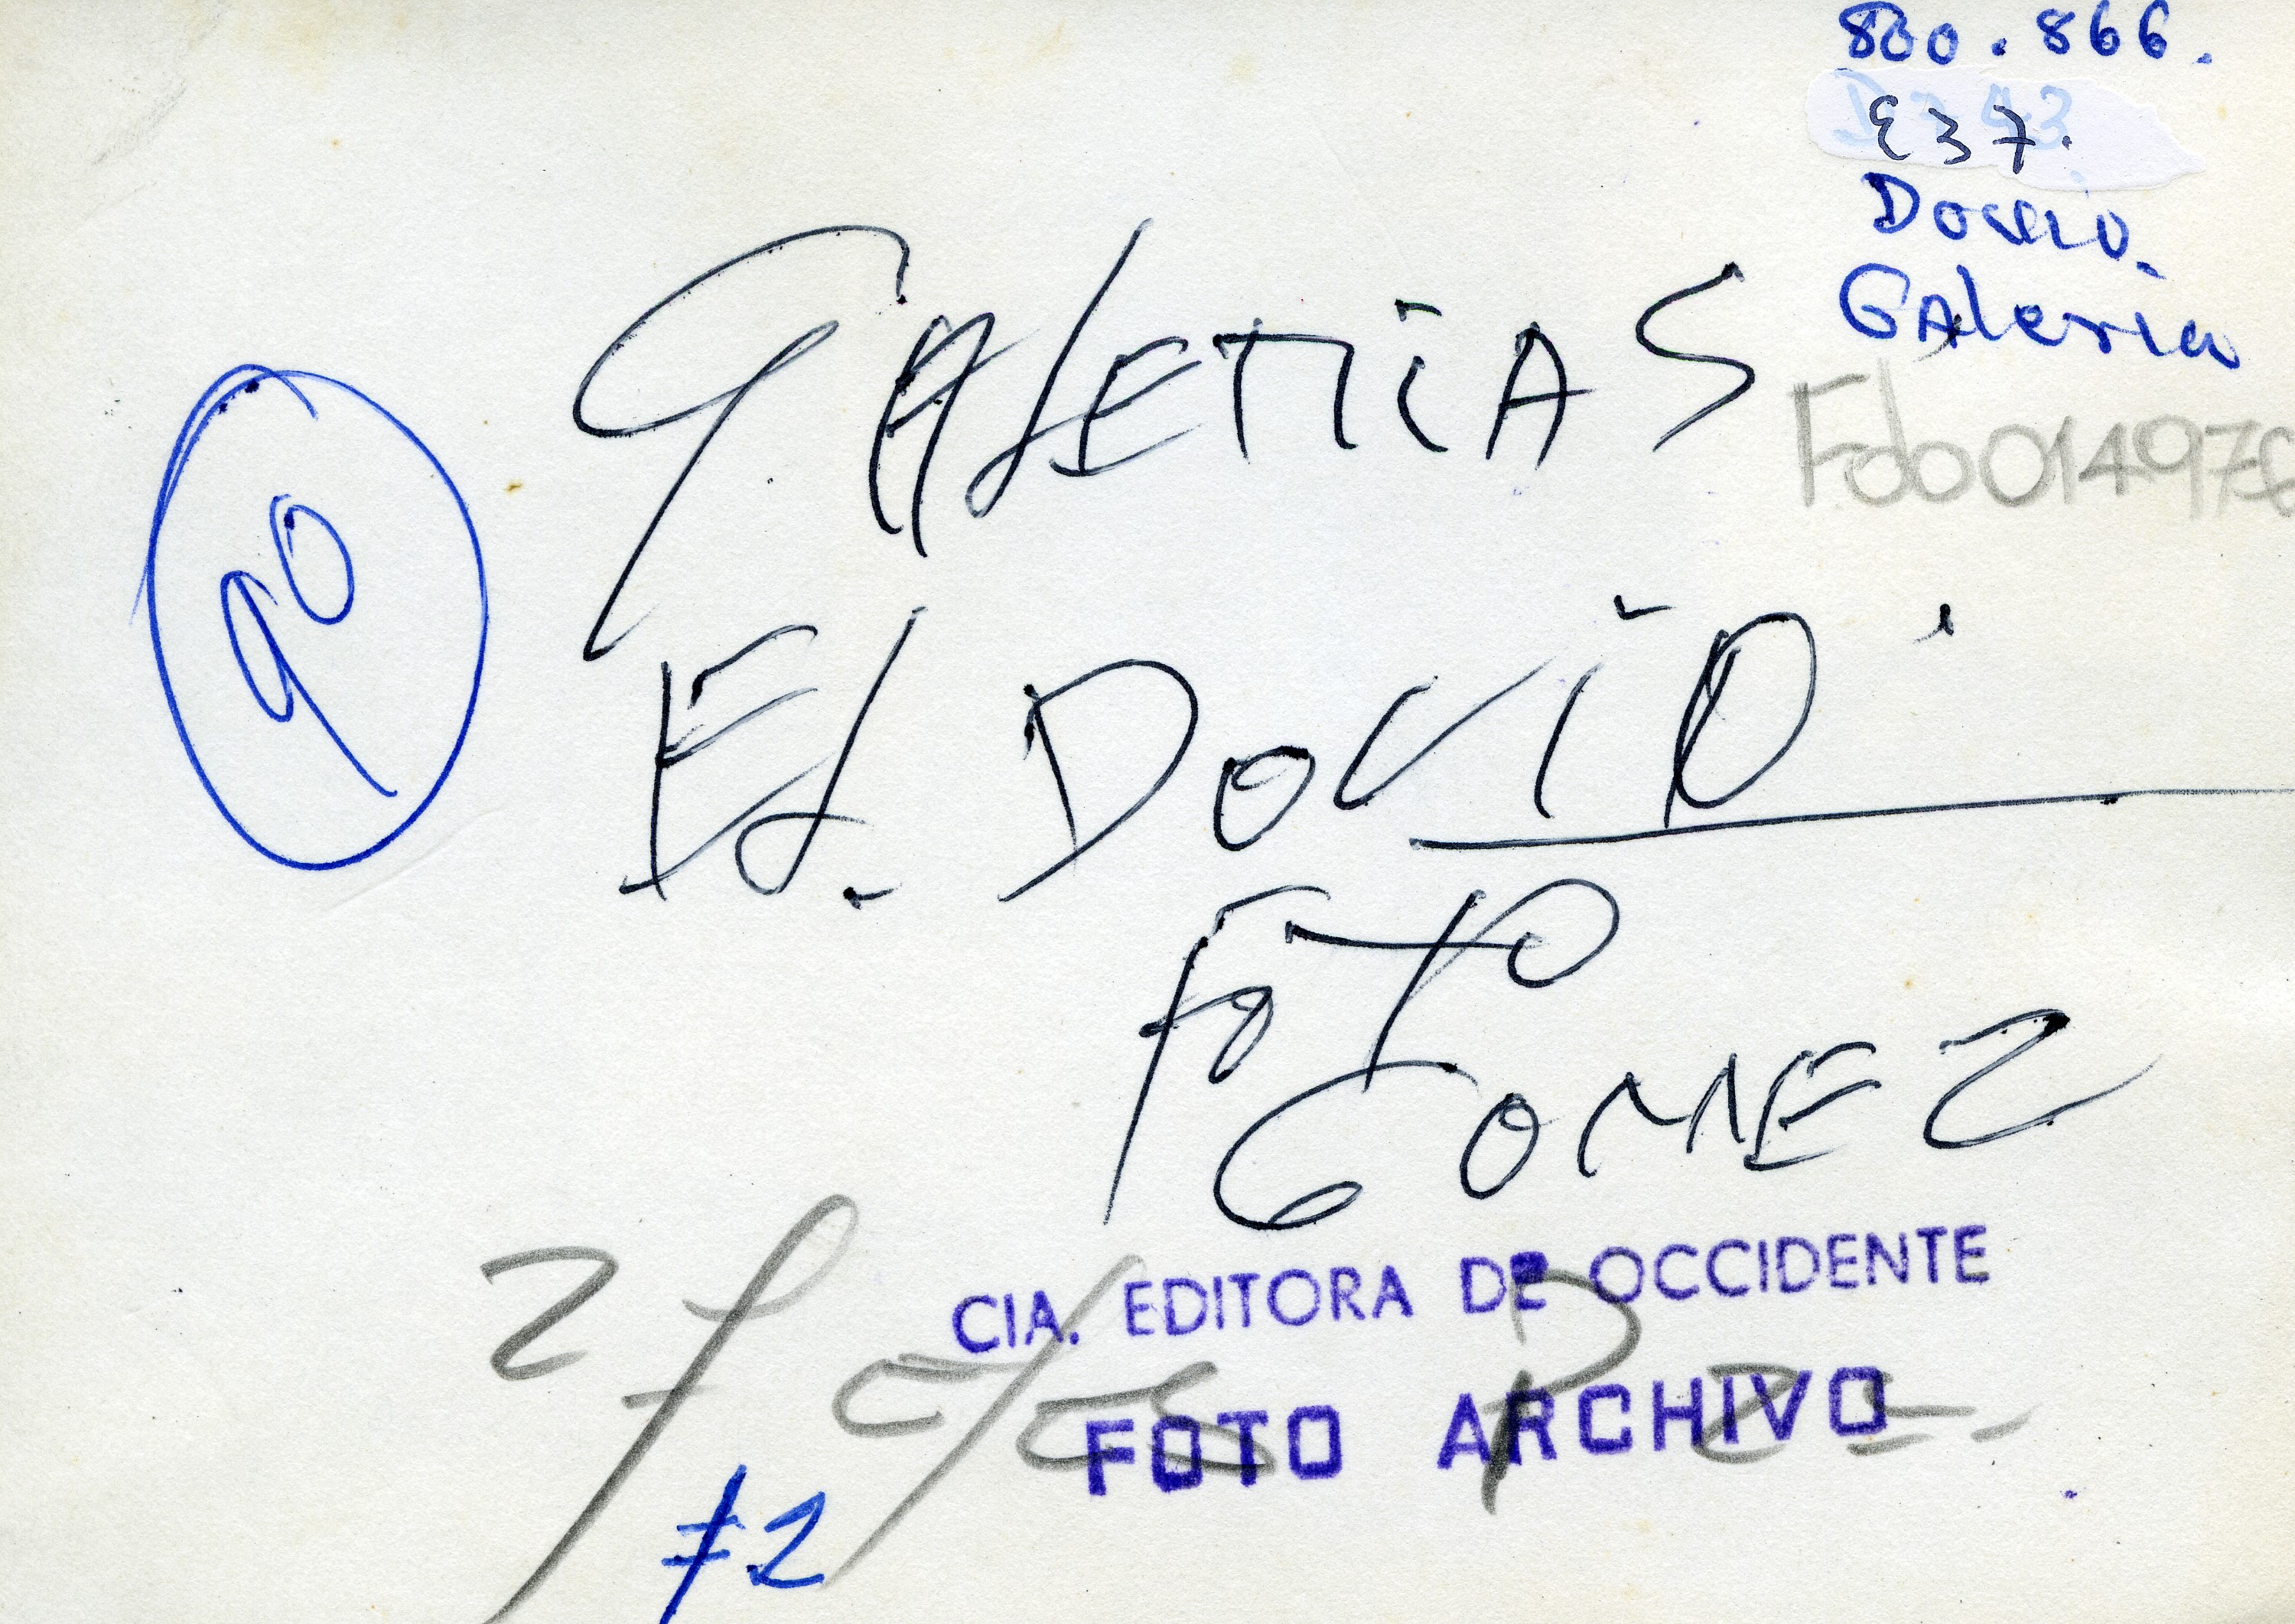 800.866.
E37.
Dovio.
GAleria
Fdo014976
90
GALERIAS
EL. DOVIO
FOTO
GOMEZ
CIA. EDITORA DE OCCIDENTE
FOTO ARCHIVO
#2